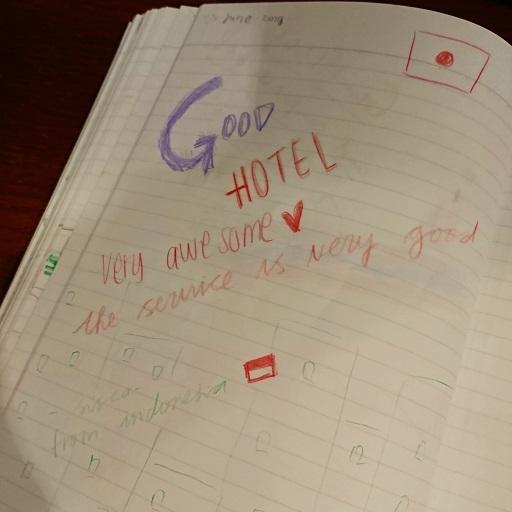 GOOD
HOTEL
very awesome
the service is very good
from indonesia